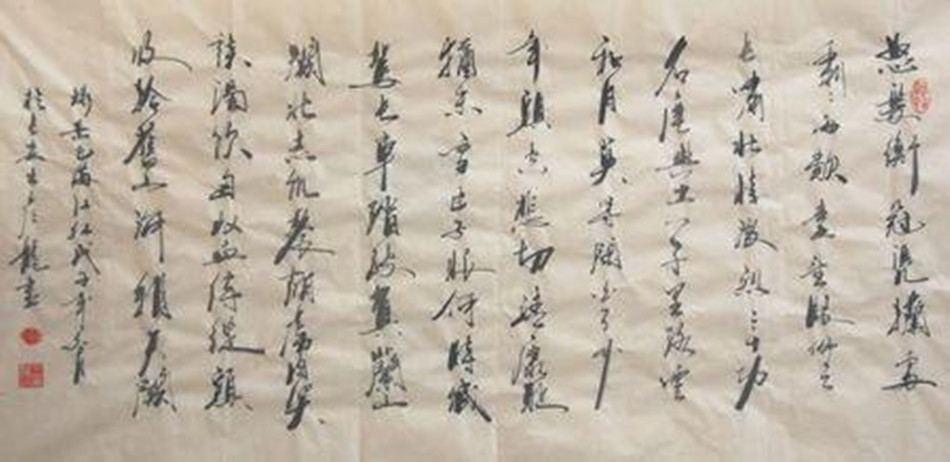 怒髮衝冠憑欄處
瀟瀟雨歇抬望眼仰天
長嘯壯懷激烈三十功
名塵與土八千里路雲
和月莫等閒白了少
年頭空悲切靖康恥
猶未雪臣子恨何時滅
駕長車踏破賀蘭山
闕壯志飢餐胡虜肉笑
談渴飲匈奴血待從頭
收拾舊山河朝天闕
滿江紅戊子年月
於長安龍書